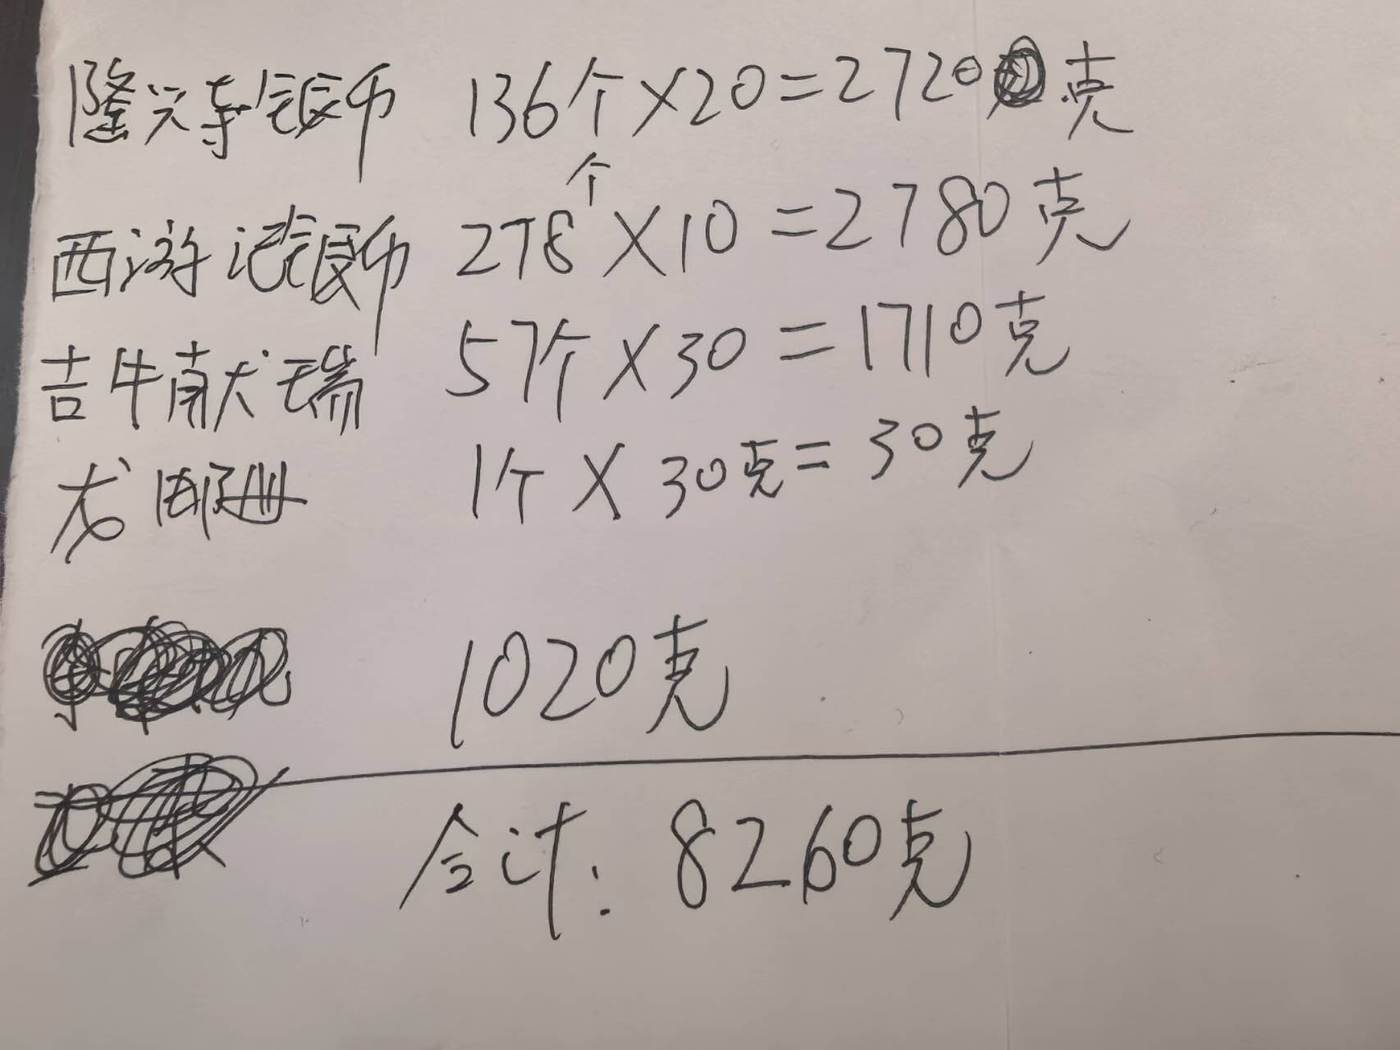 隆兴寺银币 136个×20=2720克
西游记银币 278个×10=2780克
吉牛献瑞 57个×30=1710克
龙邮册 1个×30克=30克
1020克
合计:8260克